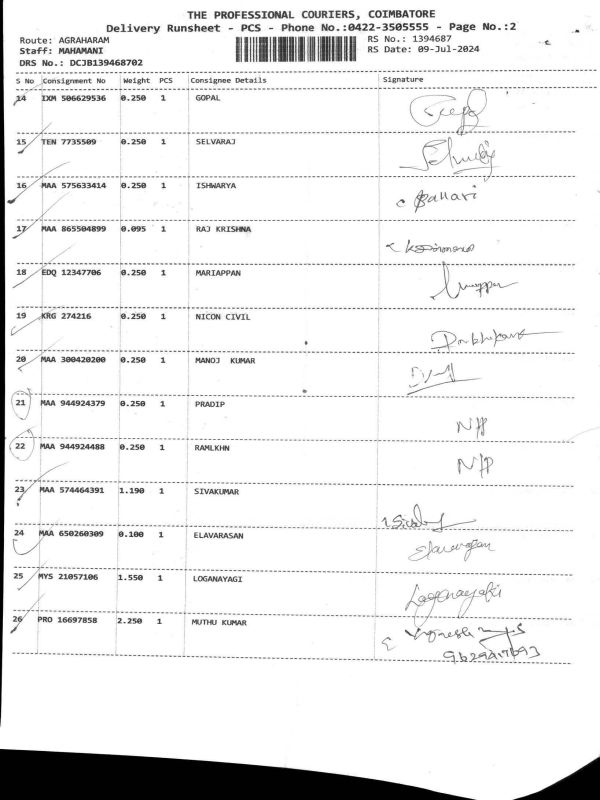 THE PROFESSIONAL COURIERS, COIMBATORE
Delivery Runsheet - PCS - Phone No.:0422-3505555 - Page No.:2
Route: AGRAHARAM RS No.: 1394687
Staff: MAHAMANI RS Date: 09-Jul-2024
DRS No.: DCJB139468702
S No Consignment No Weight PCS Consignee Details Signature
14 IXM 506629536 0.250 1 GOPAL
15 TEN 7735509 0.250 1 SELVARAJ
16 MAA 575633414 0.250 1 ISHWARYA
17 MAA 865504899 0.095 1 RAJ KRISHNA
18 EDQ 12347706 0.250 1 MARIAPPAN
19 KRG 274216 0.250 1 NICON CIVIL
20 MAA 300420200 0.250 1 MANOJ KUMAR
21 MAA 944924379 0.250 1 PRADIP
22 MAA 944924488 0.250 1 RAMLKHN
23 MAA 574464391 1.190 1 SIVAKUMAR
24 MAA 650260309 0.100 1 ELAVARASAN Elavarasan
25 MYS 21057106 1.550 1 LOGANAYAGI Loganayaki
26 PRO 16697858 2.250 1 MUTHU KUMAR